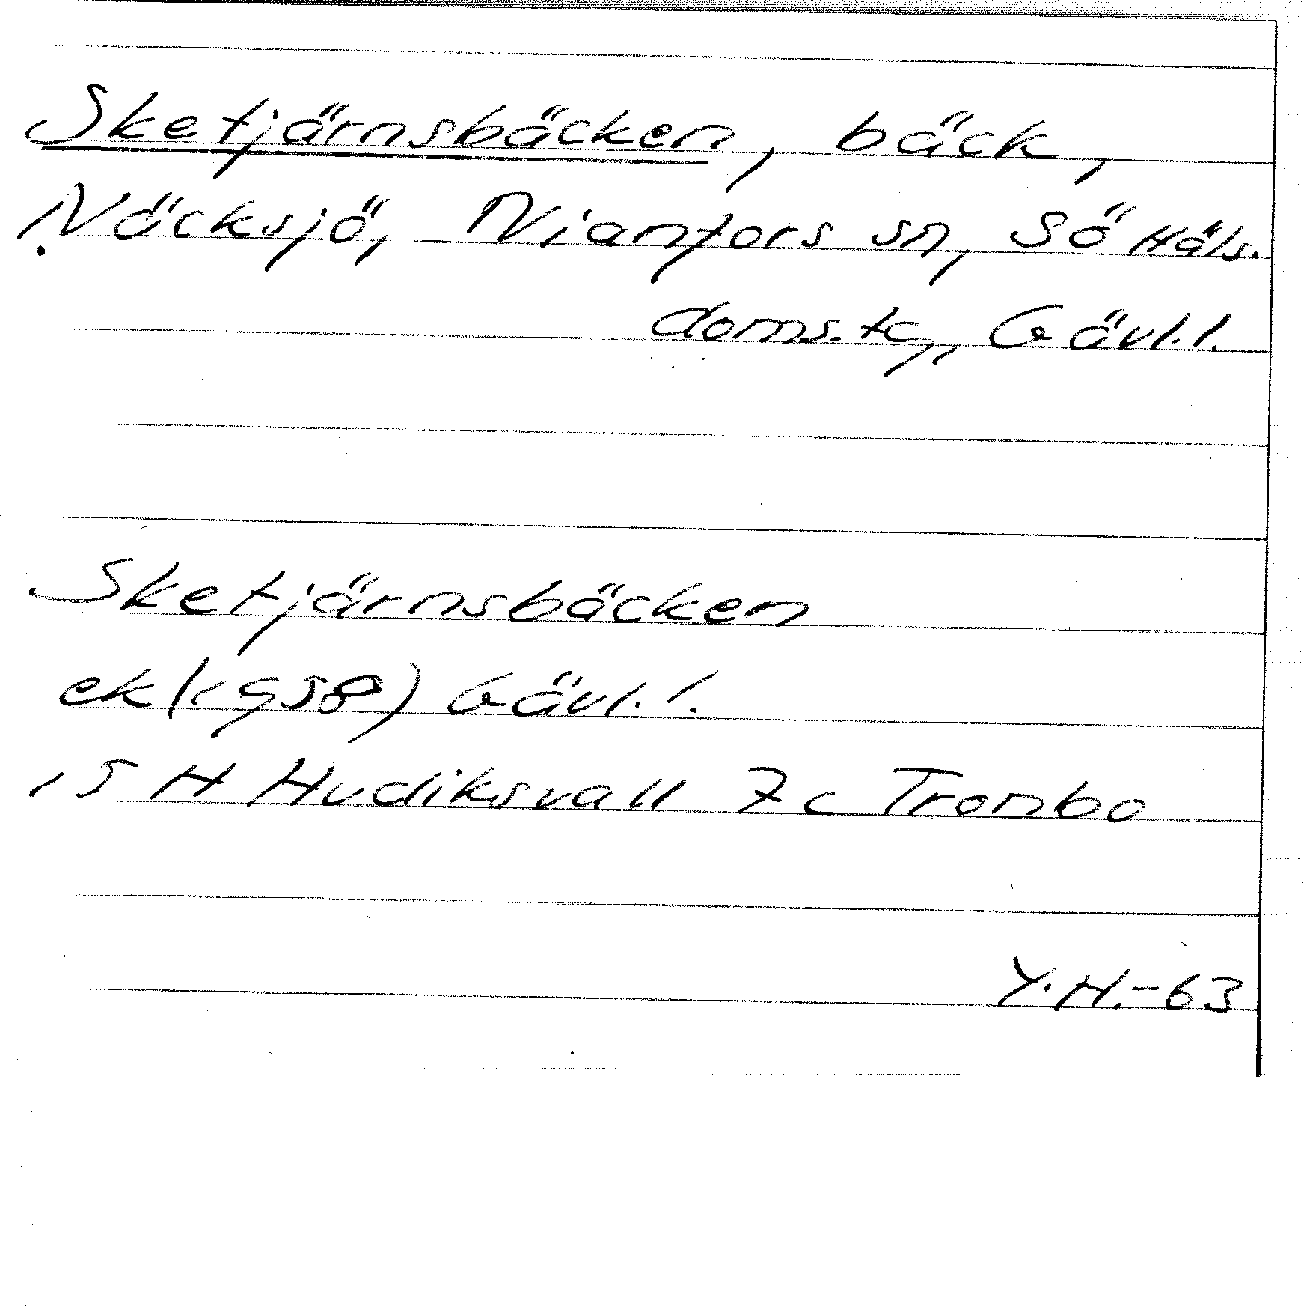 Sketjärnsbäcken, bäck,
Näcksjö, Nianfors sn, Sö Häls.
doms.tg,, Gävl.l.
Sketjärnsbäcken
ek (1958) Gävl.l.
15 H Hudiksvall 7c Trombo
Y.H.-63